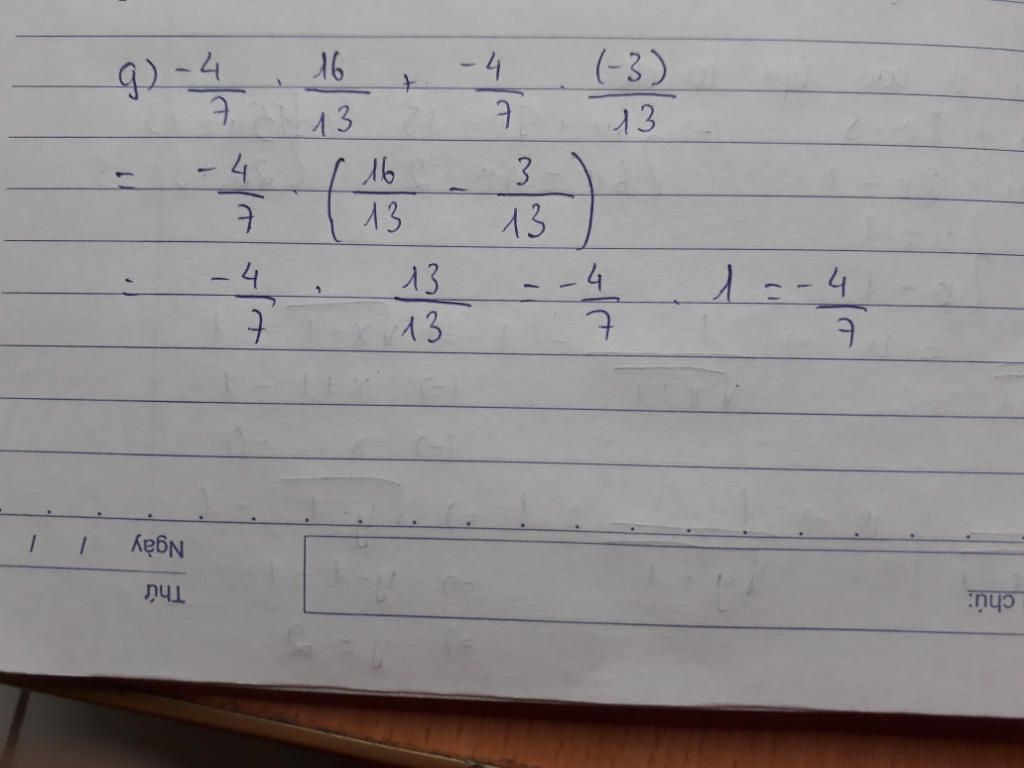 g) -4/7 . 16/13 + -4/7 . (-3)/13
= -4/7 . (16/13 - 3/13)
= -4/7 . 13/13 = -4/7 . 1 = -4/7
Ngày / /
Thứ
chú: